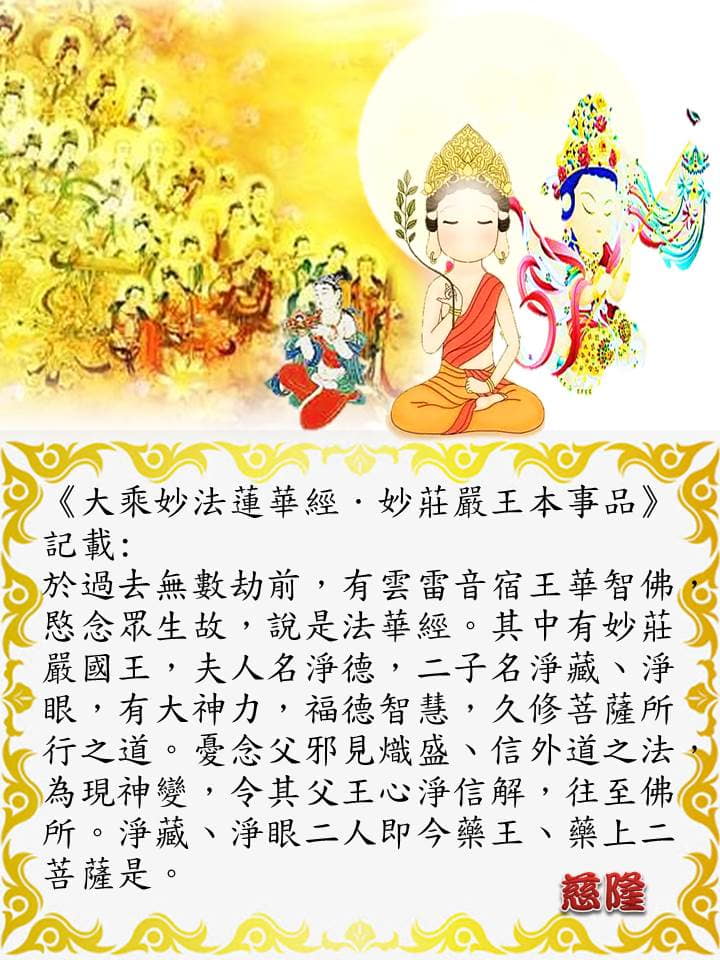 《大乘妙法蓮華經·妙莊嚴王本事品》
記載:
於過去無數劫前，有雲雷音宿王華智佛，
愍念眾生故，說是法華經。其中有妙莊
嚴國王，夫人名淨德，二子名淨藏、淨
眼，有大神力，福德智慧，久修菩薩所
行之道。憂念父邪見熾盛、信外道之法，
為現神變，令其父王心淨信解，往至佛
所。淨藏、淨眼二人即今藥王、藥上二
菩薩是。
慈隆